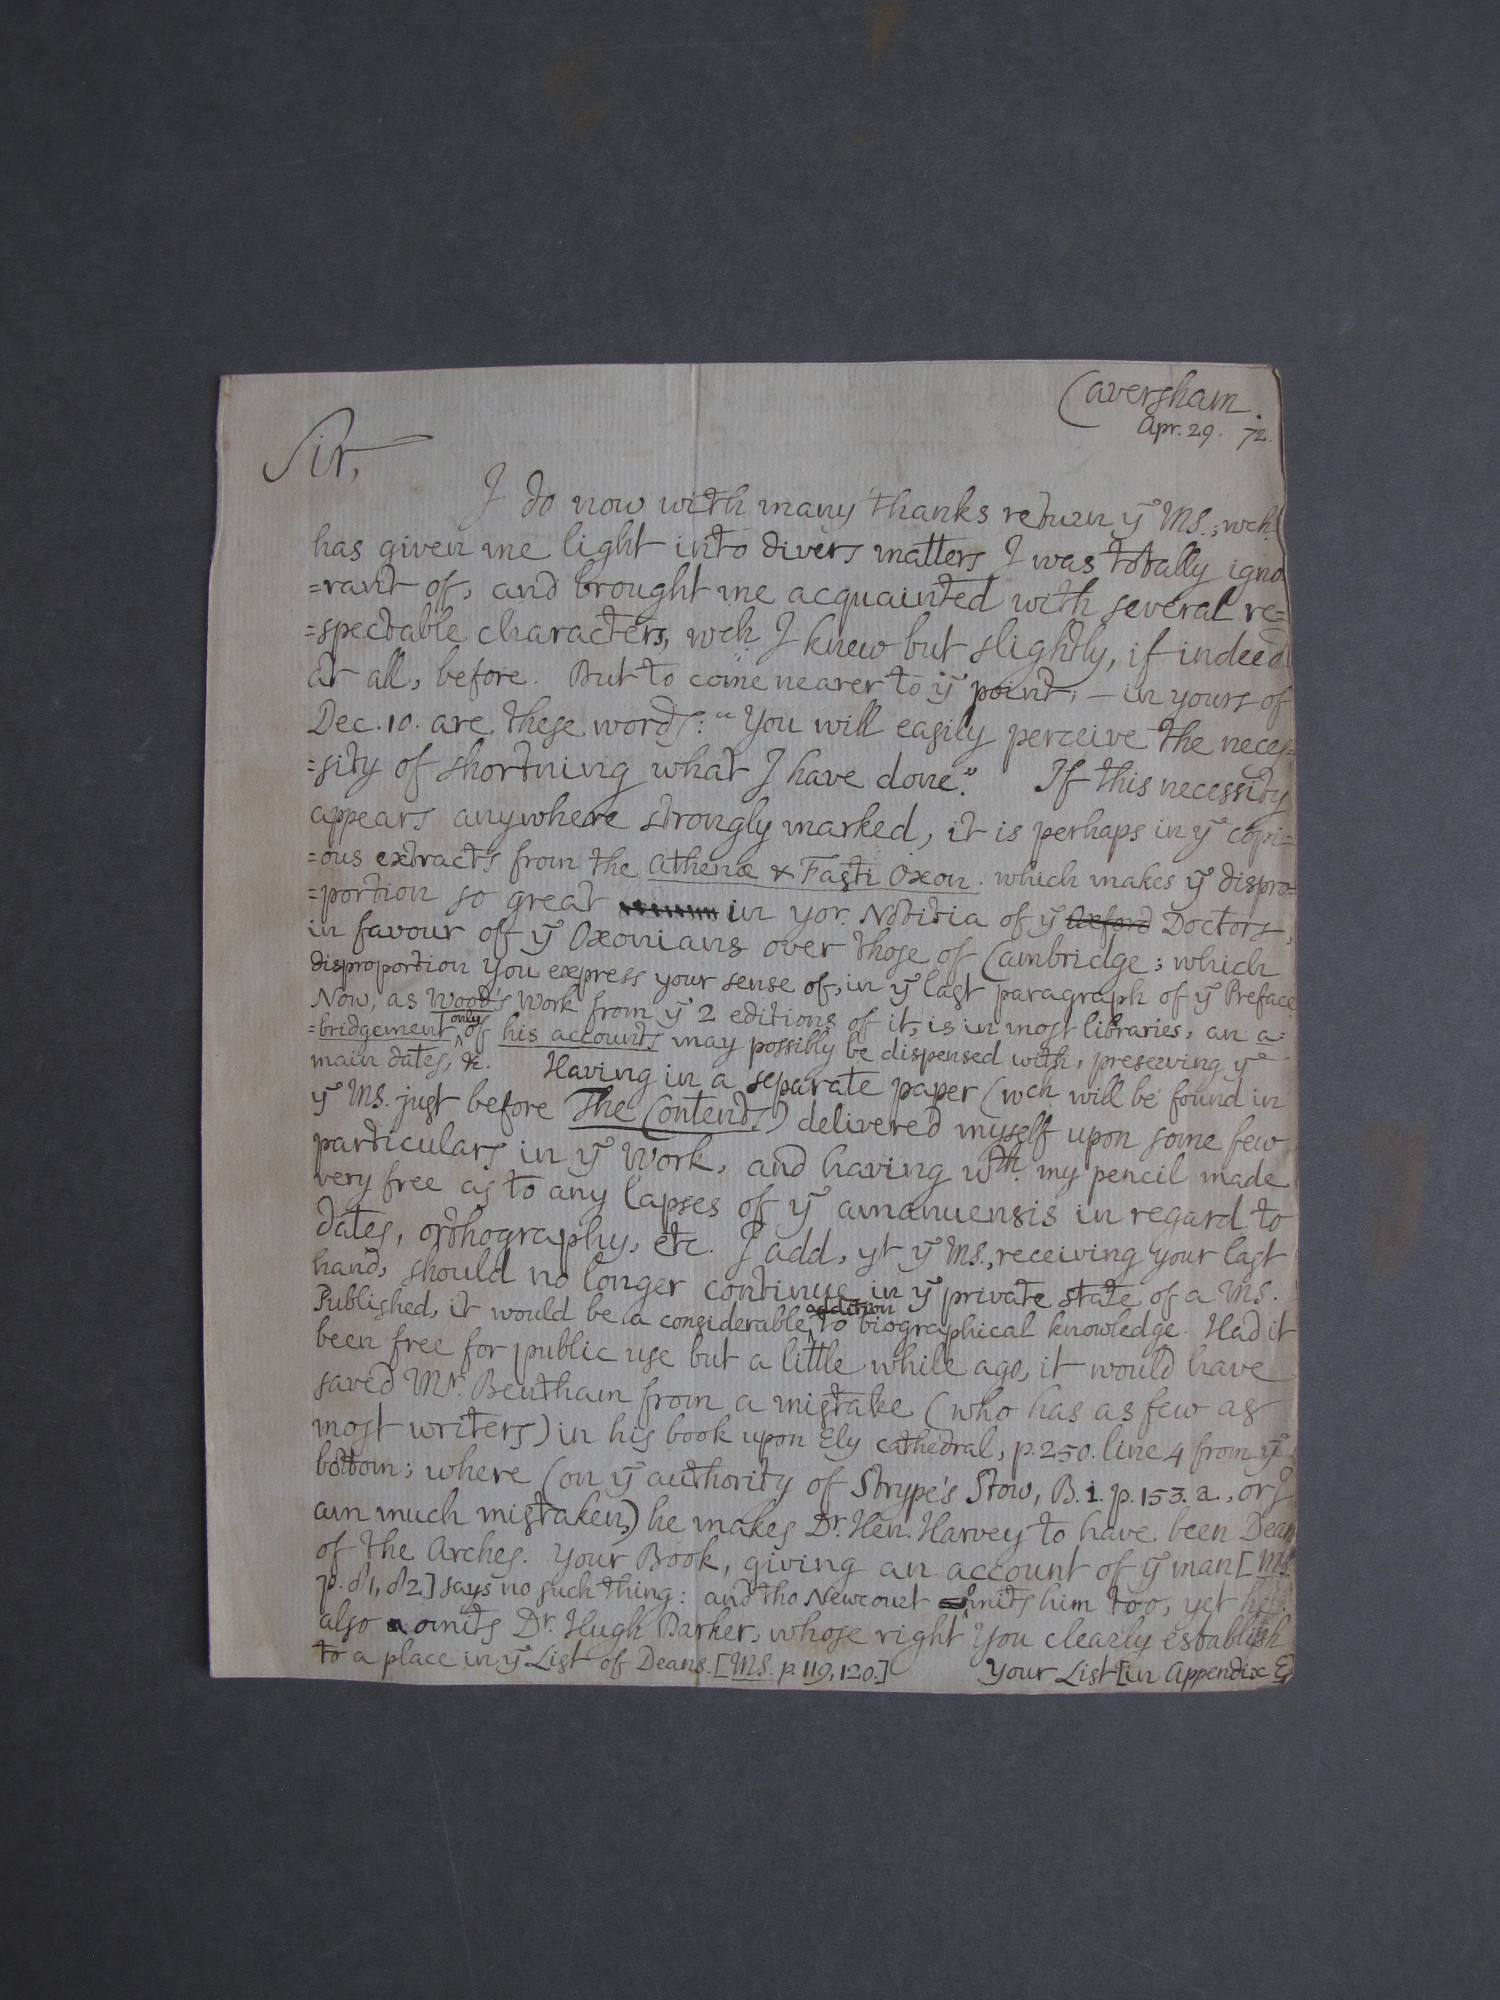 Caversham.
Apr. 29. 72.
Sir,
I do now with many thanks return yͤ MS.; wch.
has given me light into divers matters I was totally igno
=rant of, and brought me acquainted with several re=
=spectable characters, wch. I knew but slightly, if indeed
at all, before. But to come nearer to yͤ point; – in yours of
Dec. 10. are these words: "You will easily perceive the neces=
=sity of shortning what I have done." If this necessity
appears anywhere strongly marked, it is perhaps in yͤ copi=
=ous extracts from the Athenæ & Fasti Oxon. which makes yͤ dispro=
=portion so great in yor. Notitia of yͤ Oxford Doctors,
in favour of yͤ Oxonians over those of Cambridge; which
disproportion you express your sense of, in yͤ last paragraph of yͤ Preface
Now, as Wood's Work from yͤ 2 editions of it, is in most libraries, an a=
=bridgement only of his accounts may possibly be dispensed with, preserving yͤ
main dates, &c. Having in a separate paper (wch will be found in
yͤ MS. just before The Contents) delivered myself upon some few
particulars in yͤ Work, and having wth. my pencil made
very free as to any lapses of yͤ amanuensis in regard to
dates, orthography, etc. I add, yt yͤ MS., receiving your last
hand, should no longer continue in yͤ private state of a MS.
Published, it would be a considerable addition to biographical knowledge. Had it
been free for public use but a little while ago, it would have
saved Mr. Bentham from a mistake (who has as few as
most writers) in his book upon Ely cathedral, p. 250. line 4 from yͤ
bottom; where (on yͤ authority of Strype's Stow, B. 1. p. 153. a., or I
am much mistaken,) he makes Dr. Hen. Harvey to have been Dean
of the Arches. Your Book, giving an account of yͤ man [MS.
p. 81, 82.] says no such thing: and tho Newcourt omits him too, yet he
also omits Dr. Hugh Barker, whose right you clearly establish
to a place in yͤ List of Deans. [MS. p. 119, 120.] Your List [in Appendix E